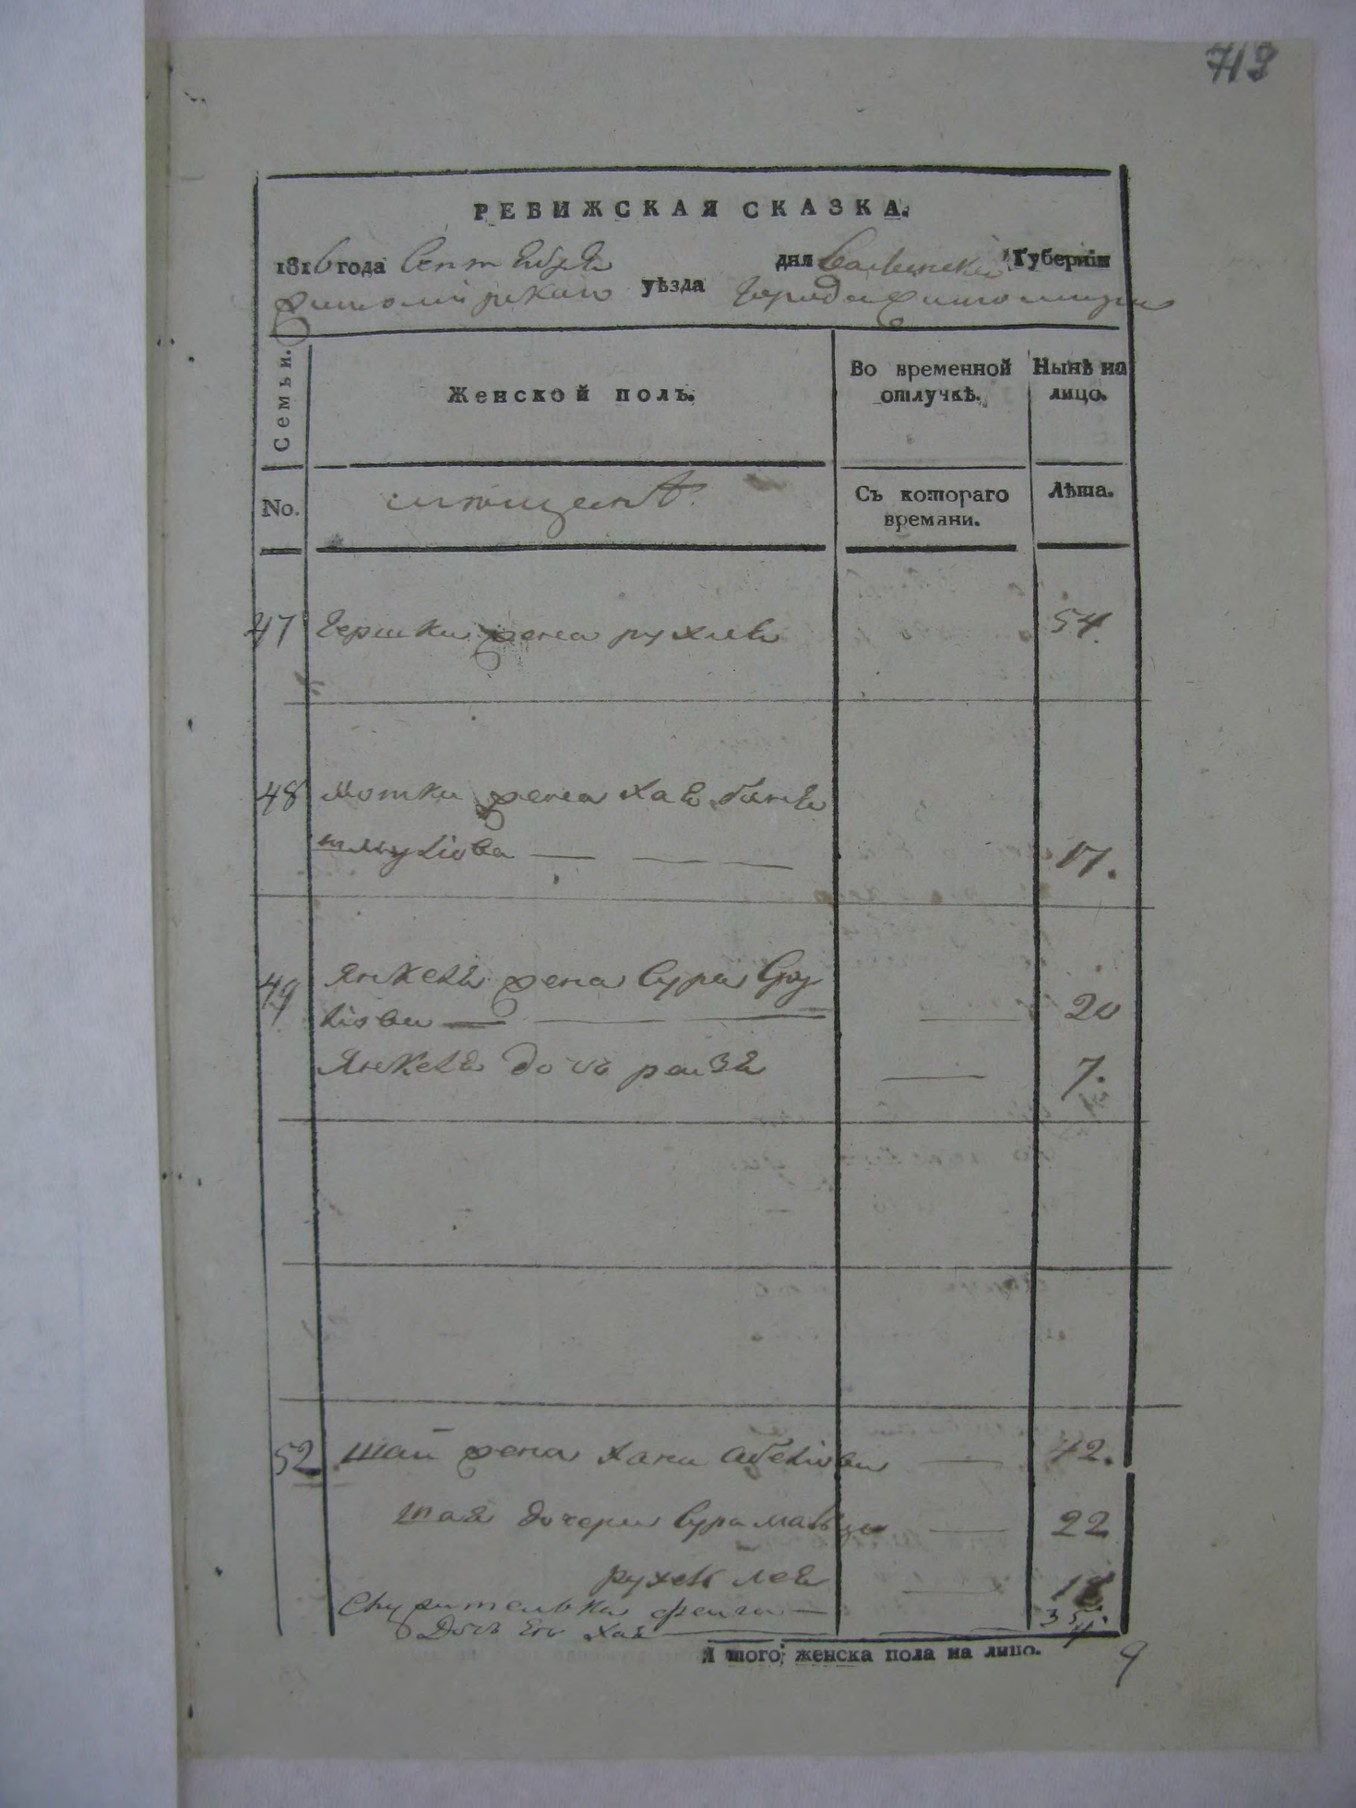 713
РЕВИЖСКАЯ СКАЗКА.
1816 года Сентября дня Волынской Губернїи
Житомирского уѣзда Города Житомира
Семьи.
Женской полъ.
Во временной отлучкѣ.
Нынѣ на лицо.
No.
Съ котораго времяни.
Лѣта.
47 Гершки жена рухля 54
48 Мотки жена Хая баня
шмулiова 17.
49 Янкеля жена Сура Сру
лiова 20
Янкеля дочь рейзя 7.
52 Шаи жена хана абелiова 42.
Шая дочери Сура 22
рухля лея
фейга
Дочь Его Хая
И того женска пола на лицо. 9